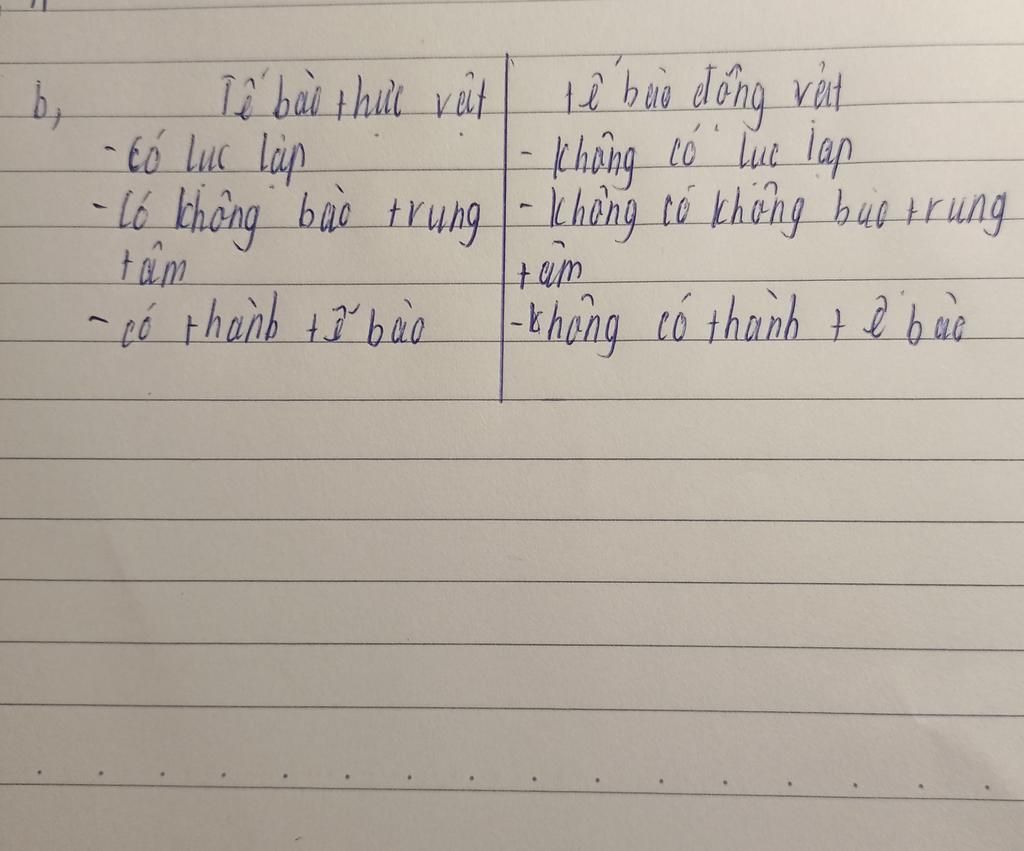 b, Tế bào thực vật | tế bào động vật
- Có lục lạp | - không có lục lạp
- Có không bào trung | - không có không bào trung
tâm | tâm
- có thành tế bào | - không có thành tế bào